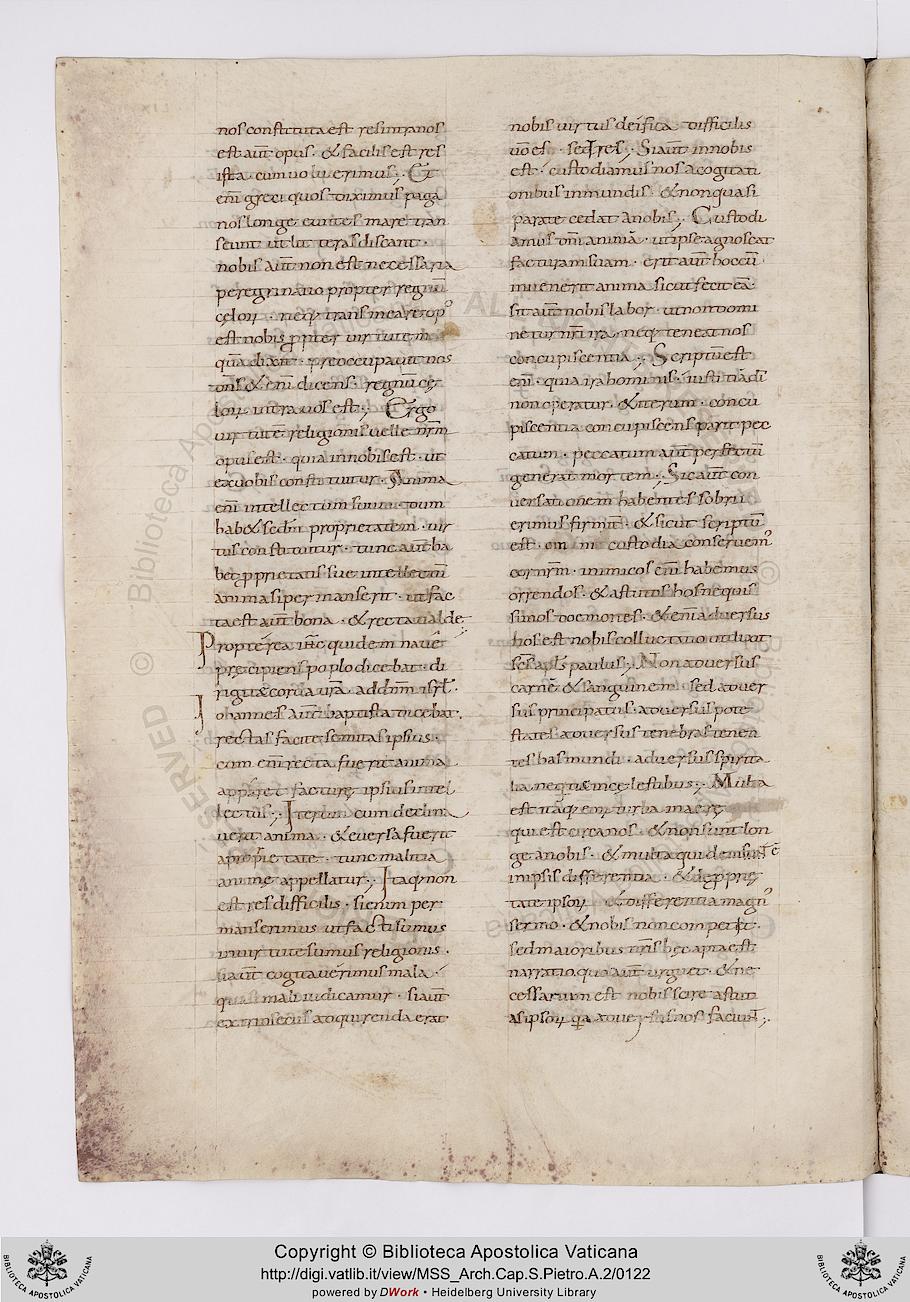 nos constituta est res intranos
est aut̄ opus · & facilis est res
ista cum voluerimus ;· Et
eni greci quos diximus paga
nos longe euntes mare tran
seunt ut litteras discant ·
nobis aut̄ non est necessaria
peregrinatio propter regnū
celorū · neq; transmeare op᷒
est nobis ꝓpter virtutem
quā dixit · preoccupavit nos
dn̄s & enī dicens · regnū cę
lorū intra vos est ;· Ergo
virtutē religionis velle nr̄m
opus est · quia in nobis est · ut
ex vobis constituitur · Anima
enī intellectum suum dum
hab& sedm̄ proprietatem · vir
tus constituitur · tunc aut̄ ha
bet ꝓprietatis suę intellectū
anima si permanserit · ut fac
ta est aut̄ bona · & recta valde ;
Propterea ih̄c quidem navē
pręcipiens poplo dicebat · di
rigite corda vr̄a · ad dn̄m isr̄l ·
Iohannes aut̄ baptista dicebat ·
rectas facite semitas ipsius ·
cum eni recta fuerit anima
apparet facturę ipsius intel
lectus ;· Iterum cum declina
verit anima · & eversa fuerit
a proprietate · tunc malitia
animę appellatur ;· Itaq; non
est res difficilis · si enim per
manserimus ut facti sumus
in virtute sumus religionis ·
si aut̄ cogitaverimus mala ·
quasi mali iudicamur · si aut̄
extrinsecus adquirenda erat
nobis virtus deifica difficilis
vo es · sed res ;· Si aut̄ in nobis
est · custodiamus nos a cogitati
onibus inmundis · & non quasi
parate cedat a nobis ;· Custodi
amus dm̄ animā · ut ipse agnoscat
facturam suam · erit aut̄ hoc cū
invenerit anima sicut fecit eā ·
sit aut̄ nobis labor · ut non domi
netur nr̄i ira · neq; teneat nos
concupiscentia ;· Scriptū est
enī · quia ira hominis · iustitiā dī
non operatur · & iterum · concu
piscentia concupiscens parit pec
catum · peccatum aut̄ perfectū
generat mortem ;· Sic aut̄ con
versationem habentes sobrii
erimus firmit̄ · & sicut scriptū
est · omni custodia conservem᷒
cor nr̄m · inimicos enī habemus
orrendos · & astutos hos nequis
simos doemones · & enī adversus
hos est nobis colluctatio ut dixit
sc̄s apl̄s paulus ;· Non adversus
carnē & sanguinem · sed adver
sus principatus · adversus pote
states adversus tenebras tenen
tes has mundi · adversus spirita
lia nequitię in celestibus ;· Multa
est itaq; eni turba in aere
qui est circa nos · & non sunt lon
ge a nobis · & multa quidem
in ipsis differentia · &
tate ipsorū & differentia magn᷒
sermo · & nobis non competit ·
sed maioribus nr̄is hęc apta est
narratio quo aut̄ urguet · & ne
cessarium est nobis scire astuti
as ipsorū qa adversus nos faciunt ;·
Copyright © Biblioteca Apostolica Vaticana
http://digi.vatlib.it/view/MSS_Arch.Cap.S.Pietro.A.2/0122
powered by DWork • Heidelberg University Library